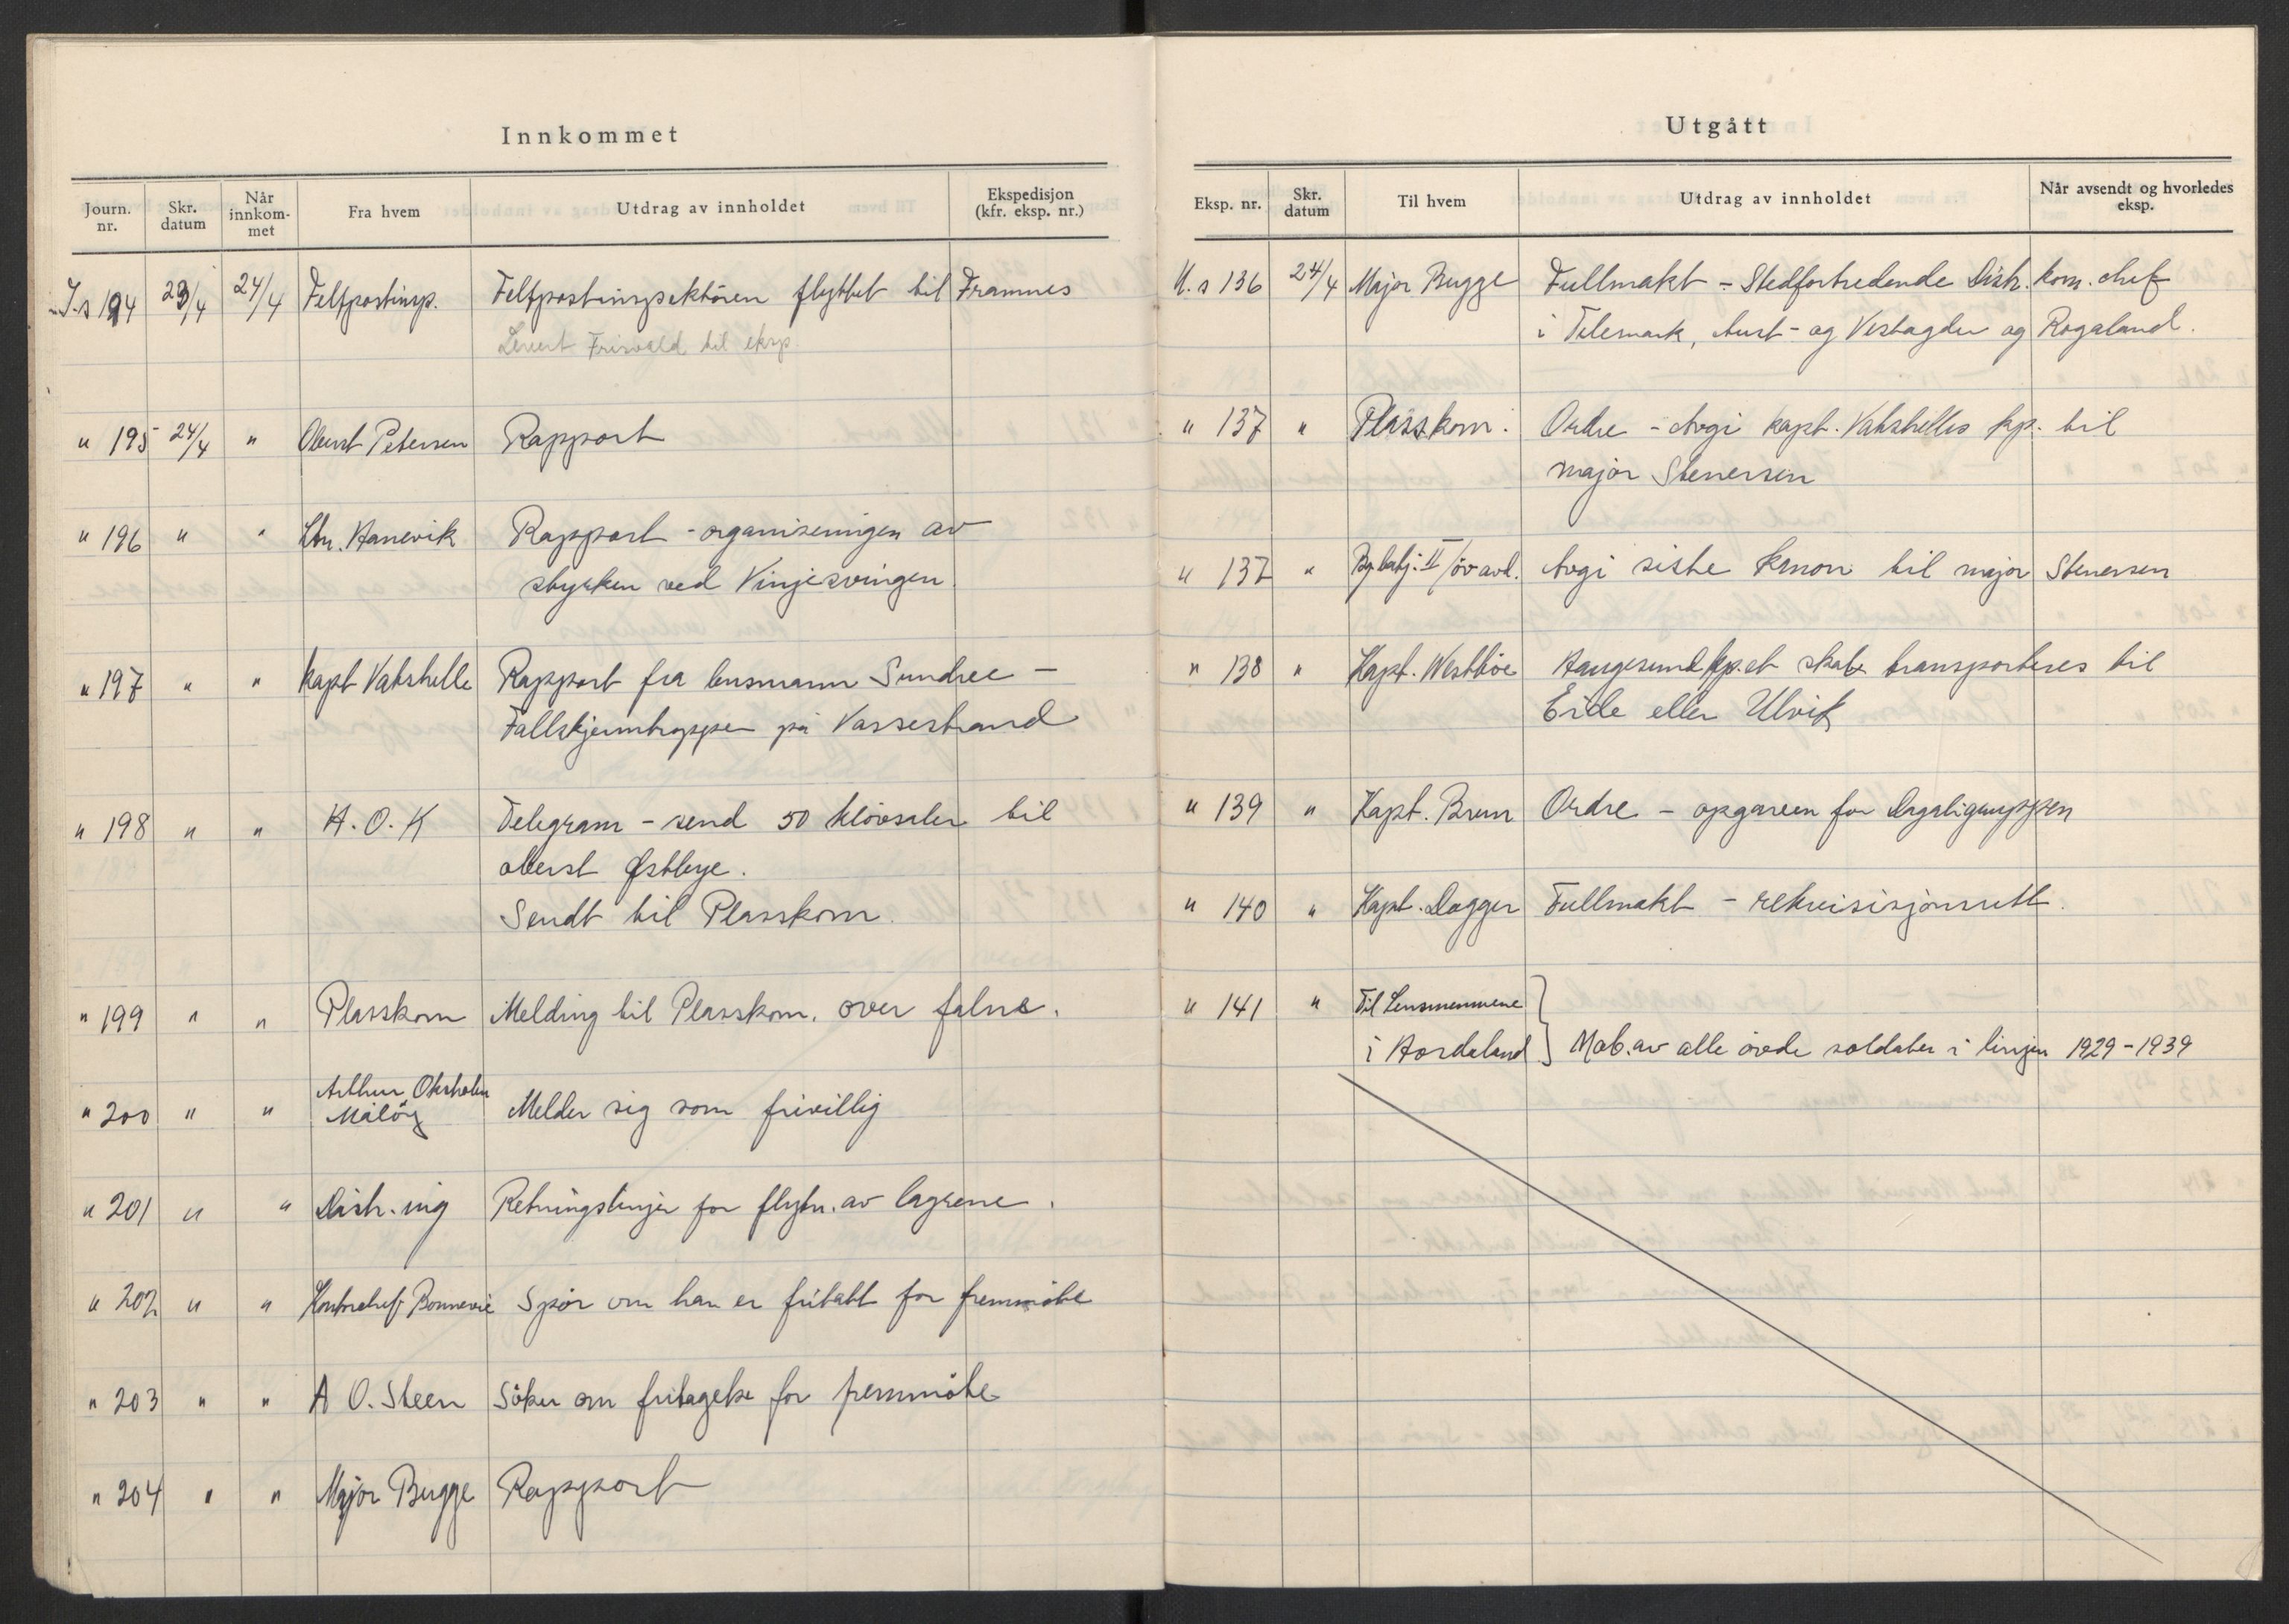 Innkommet
Journ. nr. Skr. datum Når innkommet Fra hvem Utdrag av innholdet Ekspedisjon (kfr. eksp. nr.)
J.s 194 23/4 24/4 Feltpostinsp. Feltpostinspektören flyttet til Framnes
Löient Frisvold til eksp.
" 195 24/4 " Oberst Petersen Rapport
" 196 " " Ltn. Hanevik Rapport - organiseringen av
styrken ved Vinjesvingen
" 197 " " Kapt Vakshelle Rapport fra lensmann Sundree -
Fallskjermtropper på Vassestrand
" 198 " " H.O.K Telegram - send 50 klövsaler til
oberst Østbye.
Sendt til Plasskom.
" 199 " " Plasskom Melding til Plasskom. over falne.
" 200 " " Arthur Oksholm
Målöy Melder sig som frivillig
" 201 " " Distr. ing Retningslinjer for flytn. av lagrene.
" 202 " " Kontorchef Bonnevie Spör om han er fritatt for fremmöte
" 203 " " A O. Steen Söker om fritagelse for fremmöte
" 204 " " Major Bugge Rapport
Utgått
Eksp. nr. Skr. datum Til hvem Utdrag av innholdet Når avsendt og hvorledes eksp.
U.s 136 24/4 Major Bugge Fullmakt - Stedfortredende Distr. kom. chef
i Telemark, Aust- og Vestagder og Rogaland.
" 137 " Plasskom. Ordre - Avgi kapt. Vakshelles kp. til
major Stenersen
" 137 " Bg.batj. II/öv avd. Avgi siste kanon til major Stenersen
" 138 " Kapt. Westböe Haugesundkp.et skal transporteres til
Eide eller Ulvik
" 139 " Kapt. Brun Ordre - opgaven for Dagaligruppen
" 140 " Kapt. Dagger Fullmakt - rekvisisjonsrett.
" 141 " Til Lensmennene
i Hordaland } Mob. av alle övde soldater i linjen 1929-1939